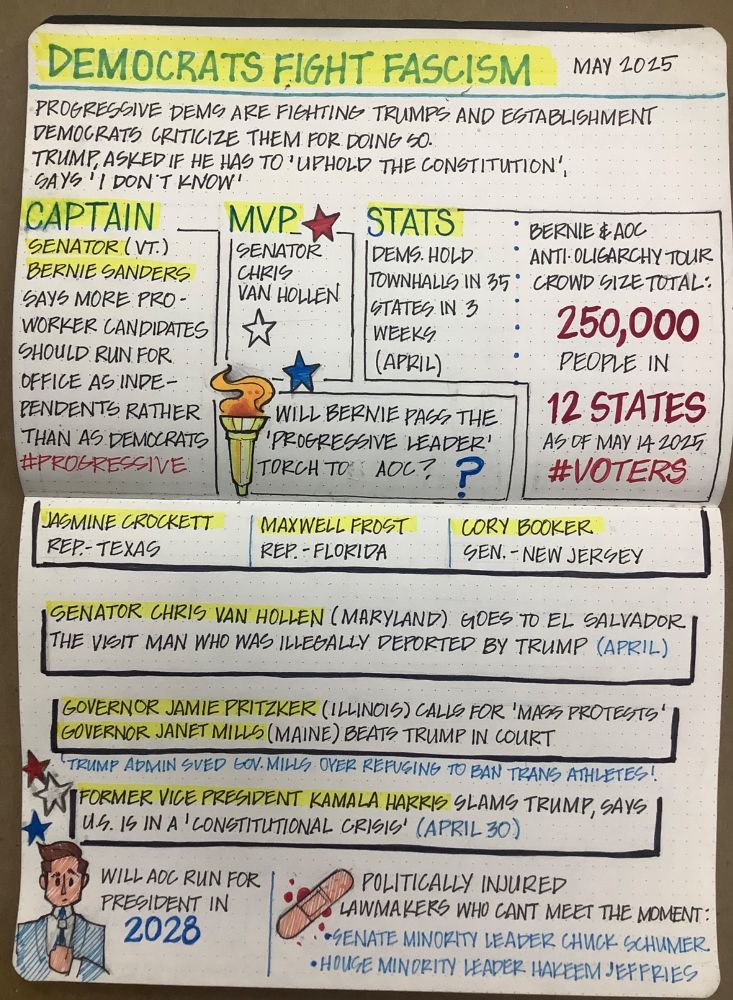 DEMOCRATS FIGHT FASCISM
MAY 2025
PROGRESSIVE DEMS ARE FIGHTING TRUMPS AND ESTABLISHMENT
DEMOCRATS CRITICIZE THEM FOR DOING SO.
TRUMP, ASKED IF HE HAS TO 'UPHOLD THE CONSTITUTION',
SAYS 'I DON'T KNOW'
CAPTAIN
SENATOR (VT.)
BERNIE SANDERS
SAYS MORE PRO-
WORKER CANDIDATES
SHOULD RUN FOR
OFFICE AS INDE-
PENDENTS RATHER
THAN AS DEMOCRATS
#PROGRESSIVE
MVP
SENATOR
CHRIS
VAN HOLLEN
STATS
DEMS. HOLD
TOWNHALLS IN 35
STATES IN 3
WEEKS
(APRIL)
BERNIE & AOC
ANTI-OLIGARCHY TOUR
CROWD SIZE TOTAL:
250,000
PEOPLE IN
12 STATES
AS OF MAY 14 2025
#VOTERS
WILL BERNIE PASS THE
'PROGRESSIVE LEADER'
TORCH TO AOC? ?
JASMINE CROCKETT
REP.-TEXAS
MAXWELL FROST
REP.-FLORIDA
CORY BOOKER
SEN.-NEW JERSEY
SENATOR CHRIS VAN HOLLEN (MARYLAND) GOES TO EL SALVADOR
THE VISIT MAN WHO WAS ILLEGALLY DEPORTED BY TRUMP (APRIL)
GOVERNOR JAMIE PRITZKER (ILLINOIS) CALLS FOR 'MASS PROTESTS'
GOVERNOR JANET MILLS (MAINE) BEATS TRUMP IN COURT
'TRUMP ADMIN SUED GOV. MILLS OVER REFUSING TO BAN TRANS ATHLETES'.
FORMER VICE PRESIDENT KAMALA HARRIS SLAMS TRUMP, SAYS
U.S. IS IN A 'CONSTITUTIONAL CRISIS' (APRIL 30)
WILL AOC RUN FOR
PRESIDENT IN
2028
POLITICALLY INJURED
LAWMAKERS WHO CANT MEET THE MOMENT:
•SENATE MINORITY LEADER CHUCK SCHUMER
•HOUSE MINORITY LEADER HAKEEM JEFFRIES